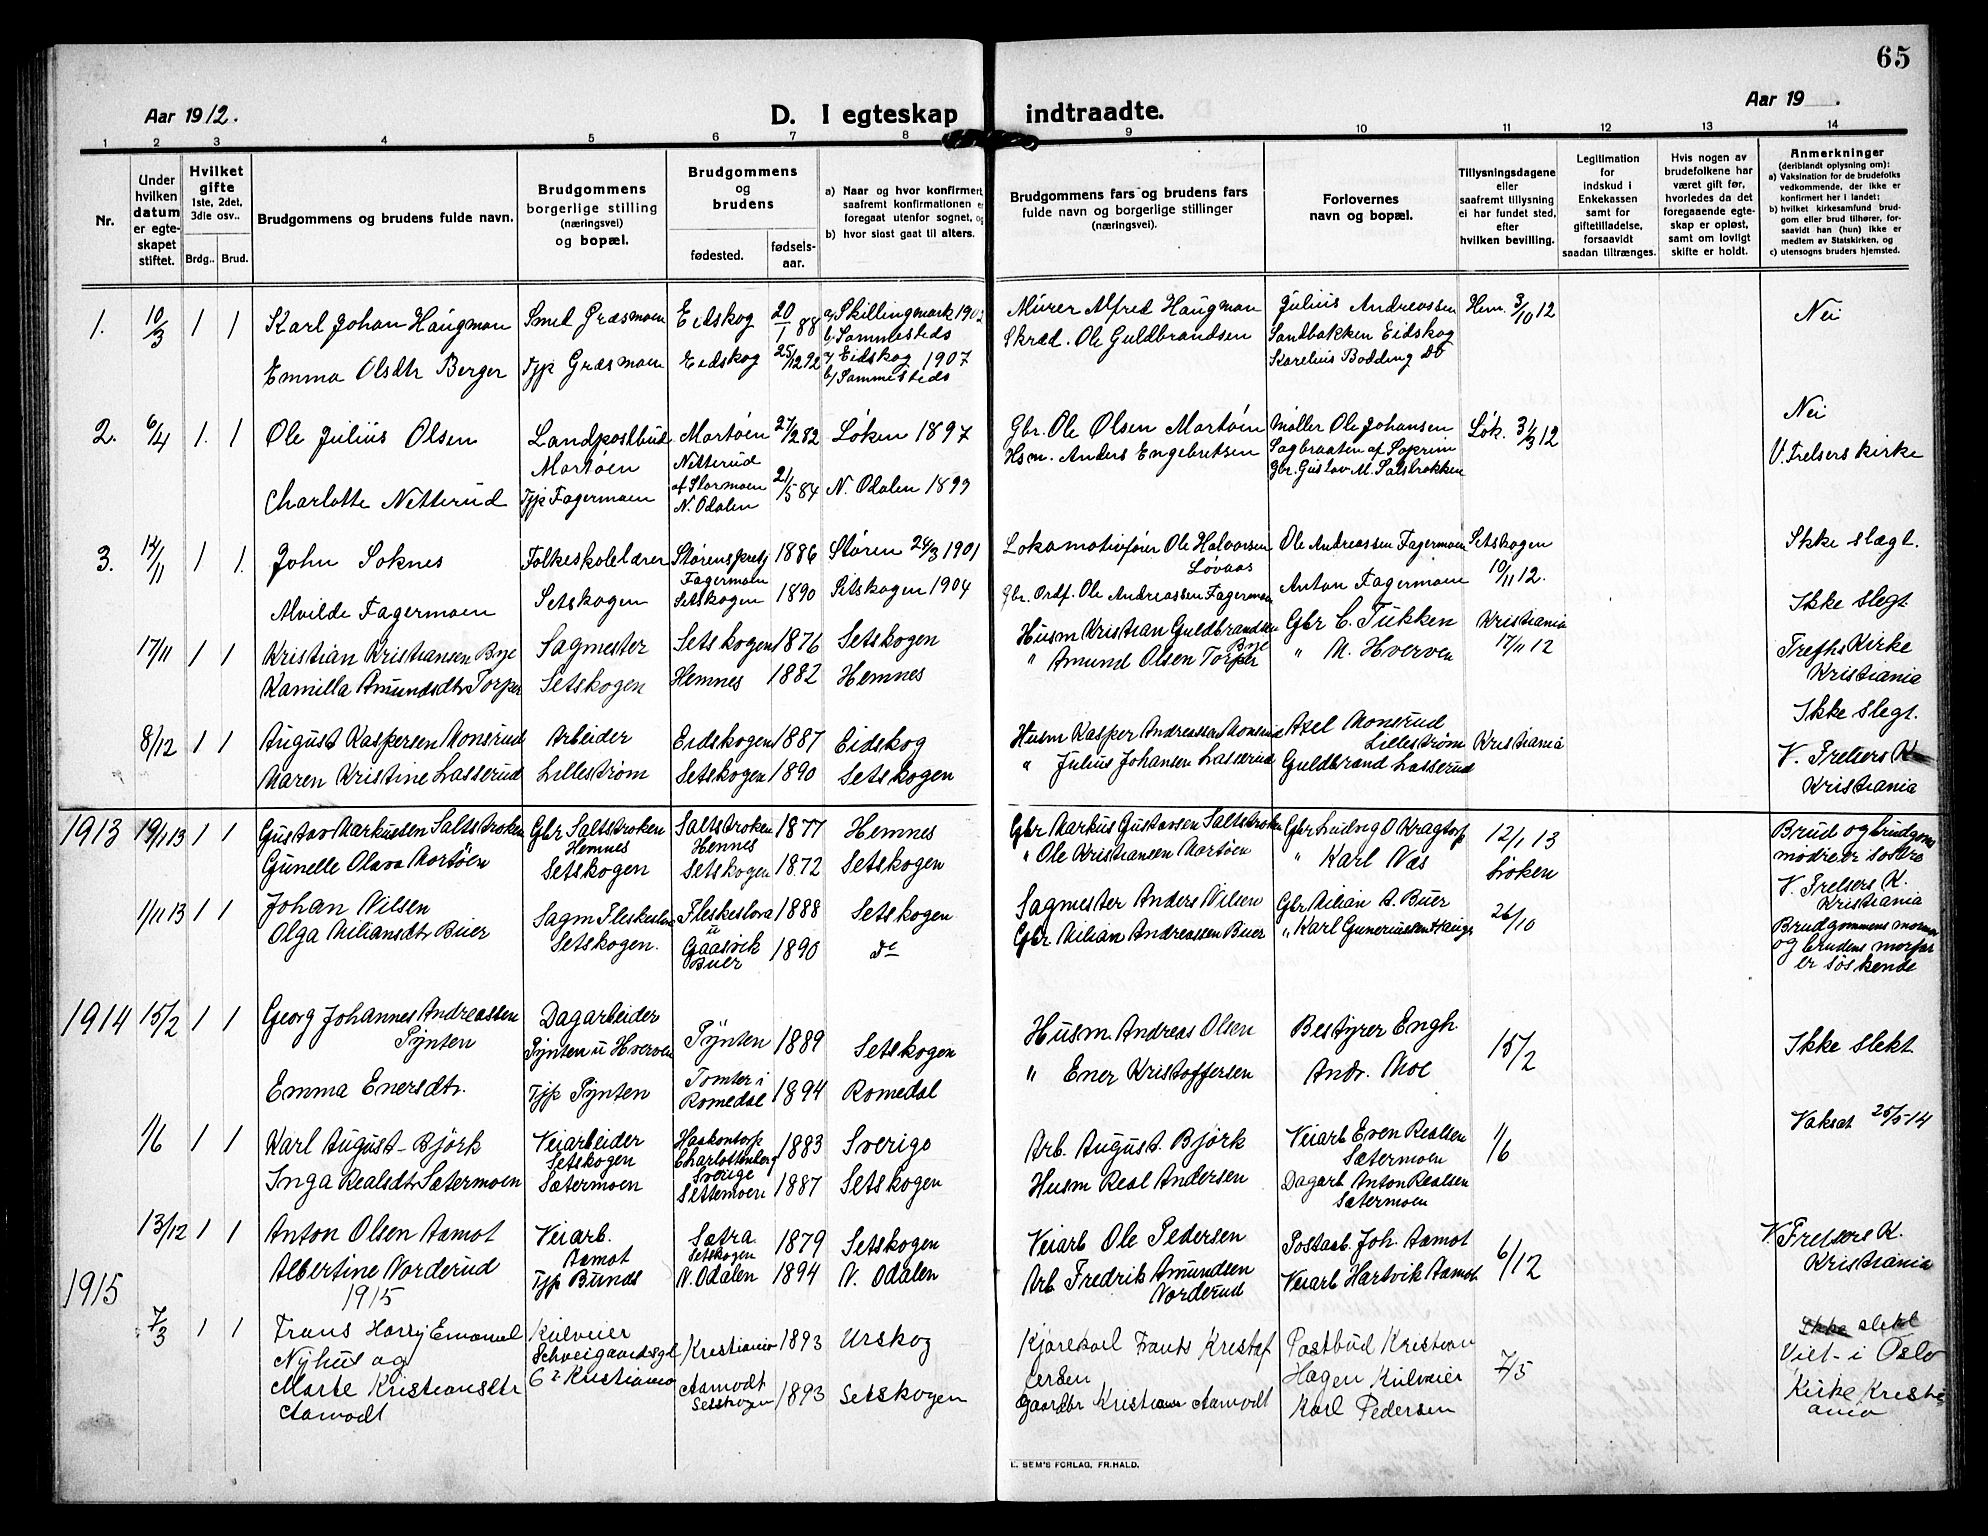 65
Aar 1912.
D. I egteskap indtraadte.
Aar 19 .
1 2 3 4 5 6 7 8 9 10 11 12 13 14
Nr.
Under hvilken datum er egteskapet stiftet.
Hvilket gifte 1ste, 2det, 3die osv..
Brdg.. Brud.
Brudgommens og brudens fulde navn.
Brudgommens borgerlige stilling (næringsvei) og bopæl.
Brudgommens og brudens
fødested.
fødsels-aar.
a) Naar og hvor konfirmert, saafremt konfirmationen er foregaat utenfor sognet, og
b) hvor sidst gaat til alters.
Brudgommens fars og brudens fars fulde navn og borgerlige stillinger (næringsvei).
Forlovernes navn og bopæl.
Tillysningsdagene eller saafremt tillysning ei har fundet sted, efter hvilken bevilling.
Legitimation for indskud i Enkekassen samt for giftetilladelse, forsaavidt saadan tiltrænges.
Hvis nogen av brudefolkene har været gift før, hvorledes da det foregaaende egteskap er opløst, samt om lovligt skifte er holdt.
Anmerkninger (deriblandt oplysning om):
a) Vaksination for de brudefolks vedkommende, der ikke er konfirmert her i landet:
b) hvilket kirkesamfund brudgom eller brud tilhører, forsaavidt han (hun) ikke er medlem av Statskirken, og
c) utensogns bruders hjemsted.
1. 10/3 1 1 Karl Johan Haugman Smed Græsmoen Eidskog 20/1 88 a/ Skillingmark 1902 b. Sammesteds Murer Alfred Haugman Julius Andreassen Sandbakken Eidskog Hem. 3/10 12 Nei
Emma Olsdtr Berger Tjp Græsmoen Eidskog 25/12 92 a/ Eidskog 1907 b/ Sammesteds Skræd. Ole Guldbrandsen Karelius Bodding Do
2. 6/4 1. 1 Ole Julius Olsen Landpostbud Martøen Martøen 27/2 82 Løken 1897 Gbr. Ole Olsen Martøen Møller Ole Johansen Løk. 31/3 12 Nei
Charlotte Netterud Tjp Fagermoen Netterud af Stormoen N. Odalen 21/5 84 N. Odalen 1899 Hsm. Anders Engebretsen Gbr. Gustav M. Saltbrokken V. Frelsers kirke
3. 14/11 1 1. John Soknes Folkeskolelærer Størens prstg 1886 Støren 24/3 1901 Lokomotivfører Ole Halvorsen Løvaas Ole Andreassen Fagermoen Setskogen 10/11 12. Ikke slægt.
Alvilde Fagermoen Setskogen Fagermoen Setskogen 1890 Setskogen 1904 Gbr. Ordf. Ole Andreassen Fagermoen Anton Fagermoen Ikke slegt.
17/11 1 1 Kristian Kristiansen Bye Sagmester Setskogen 1876 Setskogen Husm Kristian Guldbrandsen Bye Gbr C. Tukken Kristiania 17/11 12 Trefhs Kirke Kristiania
Kamilla Amundsdtr Torper Setskogen Hemnes 1882 Hemnes " Amund Olsen Torper " M. Hverven
Ikke slegt.
8/12 1 1 August Kaspersen Monsrud Arbeider Eidskogen 1887 Eidskog Husm Kasper Andreassen Monsrud Axel Monsrud Lillestrøm Kristiania V. Frelsers K. Kristiania
Maren Kristine Lasserud Lillestrøm Setskogen 1890 Setskogen " Julius Johansen Lasserud Guldbrand Lasserud
1913 19/1 13 1 1 Gustav Markussen Saltstroken Gbr Saltstroken Hemnes Saltstroken Hemnes 1877 Hemnes Gbr Markus Gustavsen Saltstroken Gbr Ludvig O Kragtorp 12/1 13 Løken Brud og brudgoms mødre er søstre
Gunelle Olava Mortøen Setskogen Setskogen 1872 Setskogen " Ole Kristiansen Mortøen " Karl Næs V. Frelsers K. Kristiania
1/11 13 1 1 Johan Nilsen Sagm Fleskeslora Setskogen. Fleskeslora u Gaasvik 1888 Setskogen Sagmester Anders Nilsen Gbr Milian A. Buer 26/10 Brudgommens mormor og brudens morfar er søskende
Olga Miliansdtr Buer Buer 1890 do Gbr. Milian Andreassen Buer " Karl Guneriussen Haugs
1914 15/2 1 1 Georg Johannes Andreassen Pynten Dagarbeider Pynten u Hverven Pynten 1889 Setskogen Husm Andreas Olsen Bestyrer Engh 15/2 Ikke slekt
Emma Enersdtr. Tjp Pynten Tomter i Romedal 1894 Romedal " Ener Kristoffersen Andr. Moe
1/6 1 1 Karl August Björk Veiarbeider Setskogen Haakontorp Charlottenberg Sverige 1883 Sverige Arb. August Björk Veiarb Even Realsen Sætermoen 1/6 Vaksat 25/5-14
Inga Realsdtr Sætermoen Sætermoen Settemoen 1887 Setskogen Husm Real Andersen Dagarb Anton Realsen Sætermoen
13/12 1 1 Anton Olsen Aamot Veiarb. Aamot Sætra Setskogen 1879 Setskogen Veiarb Ole Pedersen Postaab. Joh. Aamot 6/12 V. Frelsers K. Kristiania
Albertine Norderud Tjp Bunds N. Odalen 1894 N. Odalen Arb Fredrik Amundsen Norderud Veiarb Hartvik Aamot
1915
1915
7/3 1 1 Frans Harry Emanuel Nyhus og Kulveier Schweigaardsgt 62 Kristiania Kristiania 1893 Urskog Kjørekarl Frants Kristoffersen Postbud Kristian Hagen Kulveier 7/5 Ikke slekt Viet i Oslo Kirke Kristiania
Marte Kristiansdtr Aamodt Aamodt Setskogen 1893 Setskogen Gaardbr Kristian Aamodt Karl Pedersen
E. SEM'S FORLAG, FR.HALD.